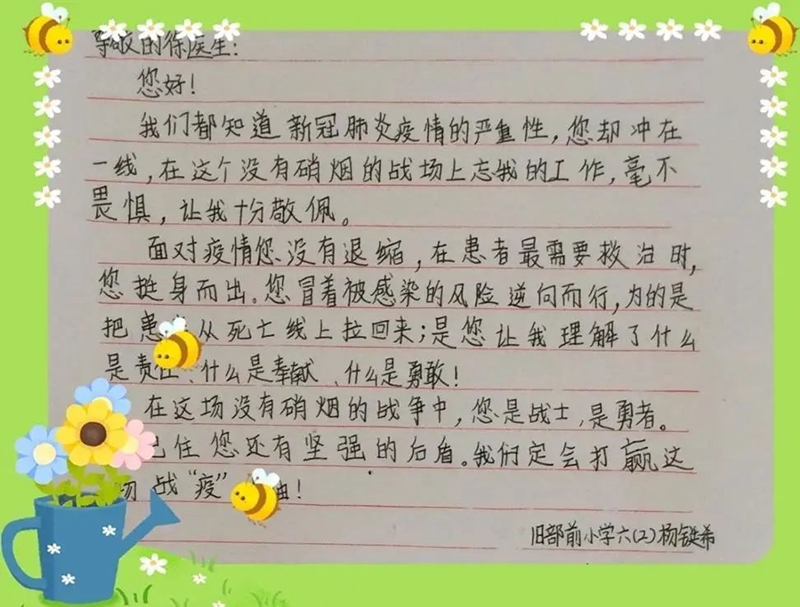 尊敬的徐医生：
您好！
我们都知道新冠肺炎疫情的严重性，您却冲在
一线，在这个没有硝烟的战场上忘我的工作，毫不
畏惧，让我十分敬佩。
面对疫情您没有退缩，在患者最需要救治时，
您挺身而出。您冒着被感染的风险逆向而行，为的是
把患 从死亡线上拉回来；是您让我理解了什么
是责任、什么是奉献、什么是勇敢！
在这场没有硝烟的战争中，您是战士，是勇者。
记住您还有坚强的后盾。我们定会打赢这
场战“疫” 油！
旧部前小学六（2）杨 希